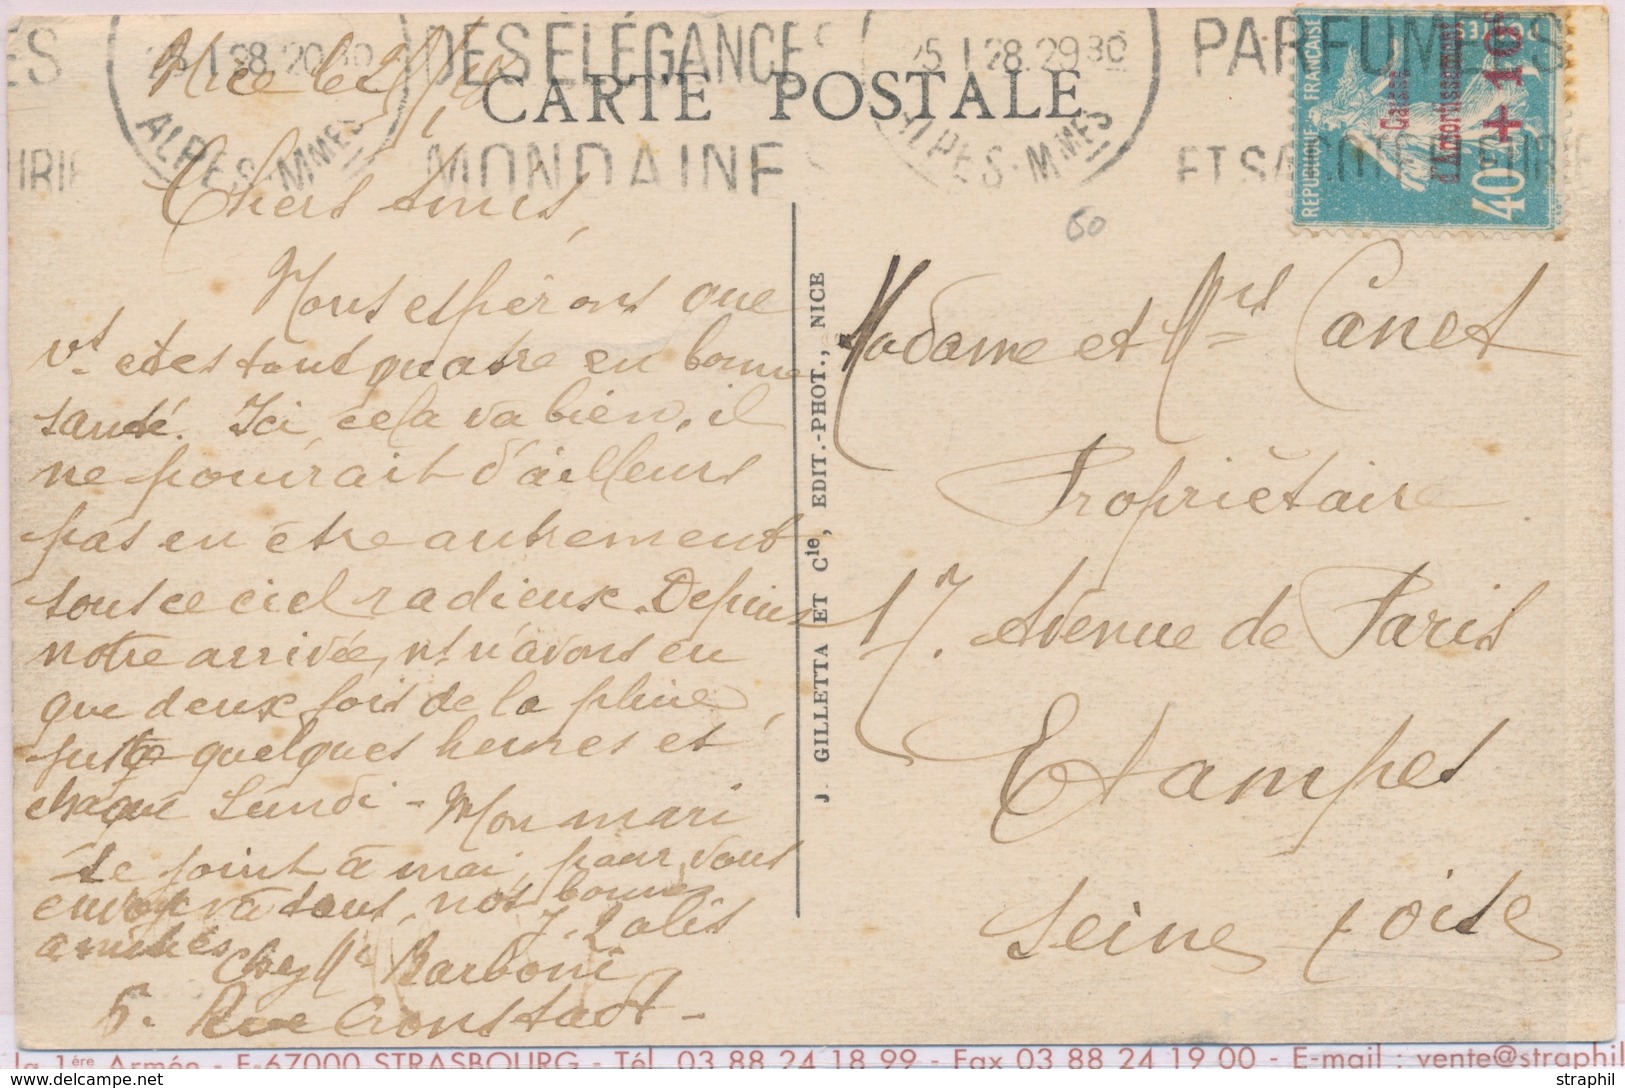 DES ÉLÉGANCES
MONDAINE
PARFUMÉES
25 I 28
ALPES-MMES
25 I 28
ALPES-MMES
CARTE POSTALE
REPUBLIQUE FRANÇAISE
POSTES
40c
Caisse
d'Amortissement
+10c
50
Nice le
Chers Amis
Nous espérons que
vs êtes tout quatre en bonne
santé. Ici cela va bien, il
ne pourrait d'ailleurs
pas en être autrement
sous ce ciel radieux. Depuis
notre arrivée, ns n'avons eu
que deux fois de la pluie,
juste quelques heures et
chaque Lundi - Mon mari
se joint à moi, pour vous
envoyer à tous, nos bonnes
amitiés J. Lalis
Chez Me Barboni
5. Rue Cronstadt -
J. GILLETTA ET Cie, EDIT.-PHOT., NICE
Madame et Mrs Canet
Propriètaire
17. Avenue de Paris
Etampes
Seine & oise
la 1ère Armée - F-67000 STRASBOURG - Tél. 03 88 24 18 99 - Fax 03 88 24 19 00 - E-mail : vente@straphil
straphil